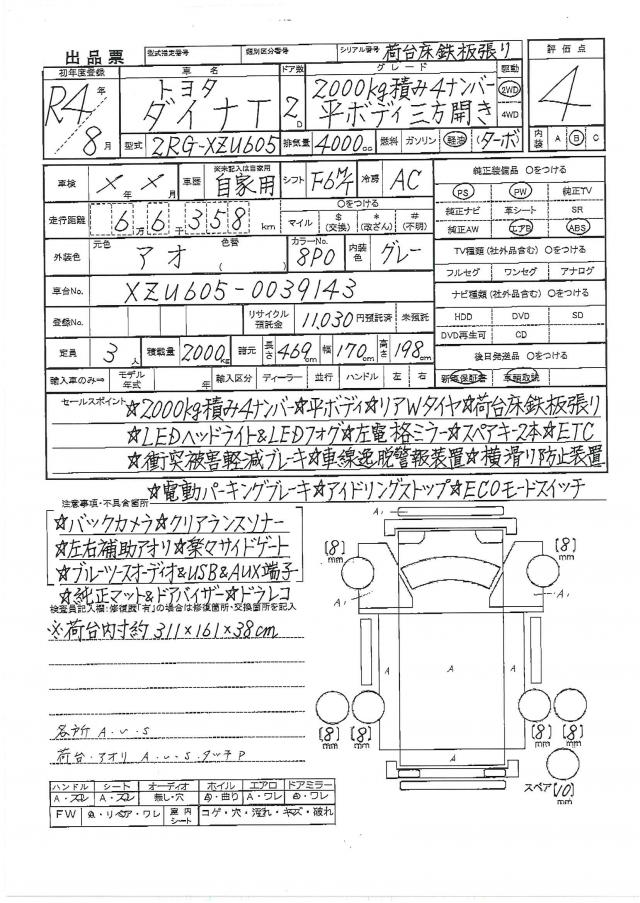 出品票 型式指定番号 類別区分番号 シリアル番号 荷台床鉄板張り 評価点
初年度登録 車名 ドア数 グレード 駆動
R4年 8月 トヨタ ダイナT 2D 2000kg積み4ナンバー 平ボディ三方開き 2WD 4WD 4
型式 2RG-XZU605 排気量 4000cc 燃料 ガソリン 軽油 (ターボ) 内装 A B C
車検 ×年×月 車歴 未記入は自家用 自家用 シフト F6M/T 冷房 AC 純正装備品 〇をつける
PS PW 純正TV
走行距離 6万6千358km 〇をつける マイル $(交換) *(改ざん) #(不明) 純正ナビ 革シート SR
純正AW エアB ABS
外装色 元色 アオ 色替 ( ) カラーNo. 8P0 内装色 グレー TV種類 (社外品含む) 〇をつける
フルセグ ワンセグ アナログ
車台No. XZU605-0039143 ナビ種類 (社外品含む) 〇をつける
登録No. リサイクル預託金 11,030円預託済 未預託 HDD DVD SD
DVD再生可 CD
定員 3人 積載量 2000kg 諸元 長さ 469cm 幅 170cm 高さ 198cm 後日発送品 〇をつける
輸入車のみ⇒ モデル年式 年 輸入区分 ディーラー 並行 ハンドル 左 右 新車保証書 車輌取説
セールスポイント ☆2000kg積み4ナンバー☆平ボディ☆リアWタイヤ☆荷台床鉄板張り
☆LEDヘッドライト&LEDフォグ☆左電格ミラー☆スペアキー2本☆ETC
☆衝突被害軽減ブレーキ☆車線逸脱警報装置☆横滑り防止装置
☆電動パーキングブレーキ☆アイドリングストップ☆ECOモードスイッチ
注意事項・不具合箇所
☆バックカメラ☆クリアランスソナー
☆左右補助アオリ☆楽々サイドゲート
☆ブルーツースオーディオ&USB&AUX端子
☆純正マット&ドアバイザー☆ドラレコ
検査員記入欄:修復歴「有」の場合は修復箇所・交換箇所を記入
※荷台内寸約311×161×38cm
各所 A.U.S
荷台・アオリ A.U.S.タッチP
ハンドル シート オーディオ ホイル エアロ ドアミラー
A・スレ A・スレ 無し・穴 曲り A・ワレ ワレ
FW リペア・ワレ 室内シート コゲ・穴・汚れ・キズ・破れ
A1
[8]mm [8]mm
A1 A1
A A A
[8]mm [8]mm [8]mm [8]mm
A
スペア [10]mm